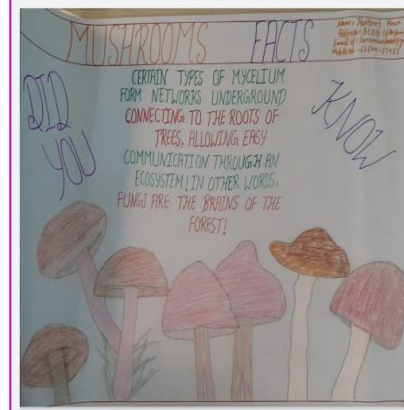 MUSHROOMS FACTS
DID
YOU
KNOW
CERTAIN TYPES OF MYCELIUM
FORM NETWORKS UNDERGROUND
CONNECTING TO THE ROOTS OF
TREES, ALLOWING EASY
COMMUNICATION THROUGH AN
ECOSYSTEM! IN OTHER WORDS,
FUNGI ARE THE BRAINS OF THE
FOREST!